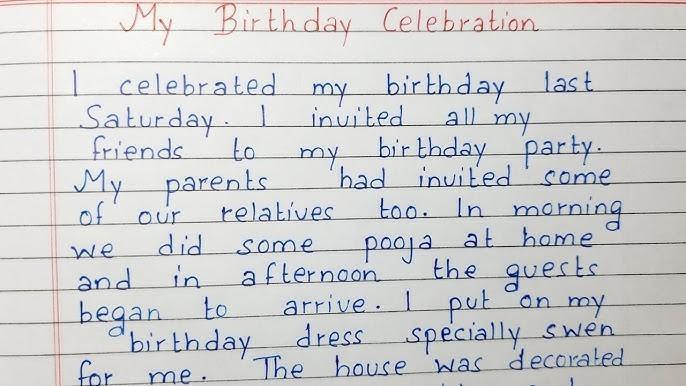 My Birthday Celebration
I celebrated my birthday last
Saturday. I invited all my
friends to my birthday party.
My parents had invited some
of our relatives too. In morning
we did some pooja at home
and in afternoon the guests
began to arrive. I put on my
birthday dress specially swen
for me. The house was decorated